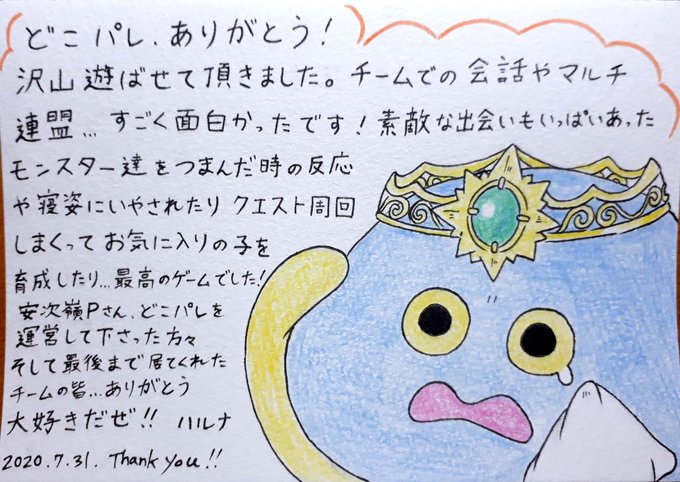 どこパレ、ありがとう!
沢山遊ばせて頂きました。チームでの会話やマルチ
連盟…すごく面白かったです!素敵な出会いもいっぱいあった
モンスター達をつまんだ時の反応
や寝姿にいやされたり クエスト周回
しまくってお気に入りの子を
育成したり…最高のゲームでした!
安次嶺Pさん、どこパレを
運営して下さった方々
そして最後まで居てくれた
チームの皆…ありがとう
大好きだぜ!! ハルナ
2020.7.31. Thank you!!